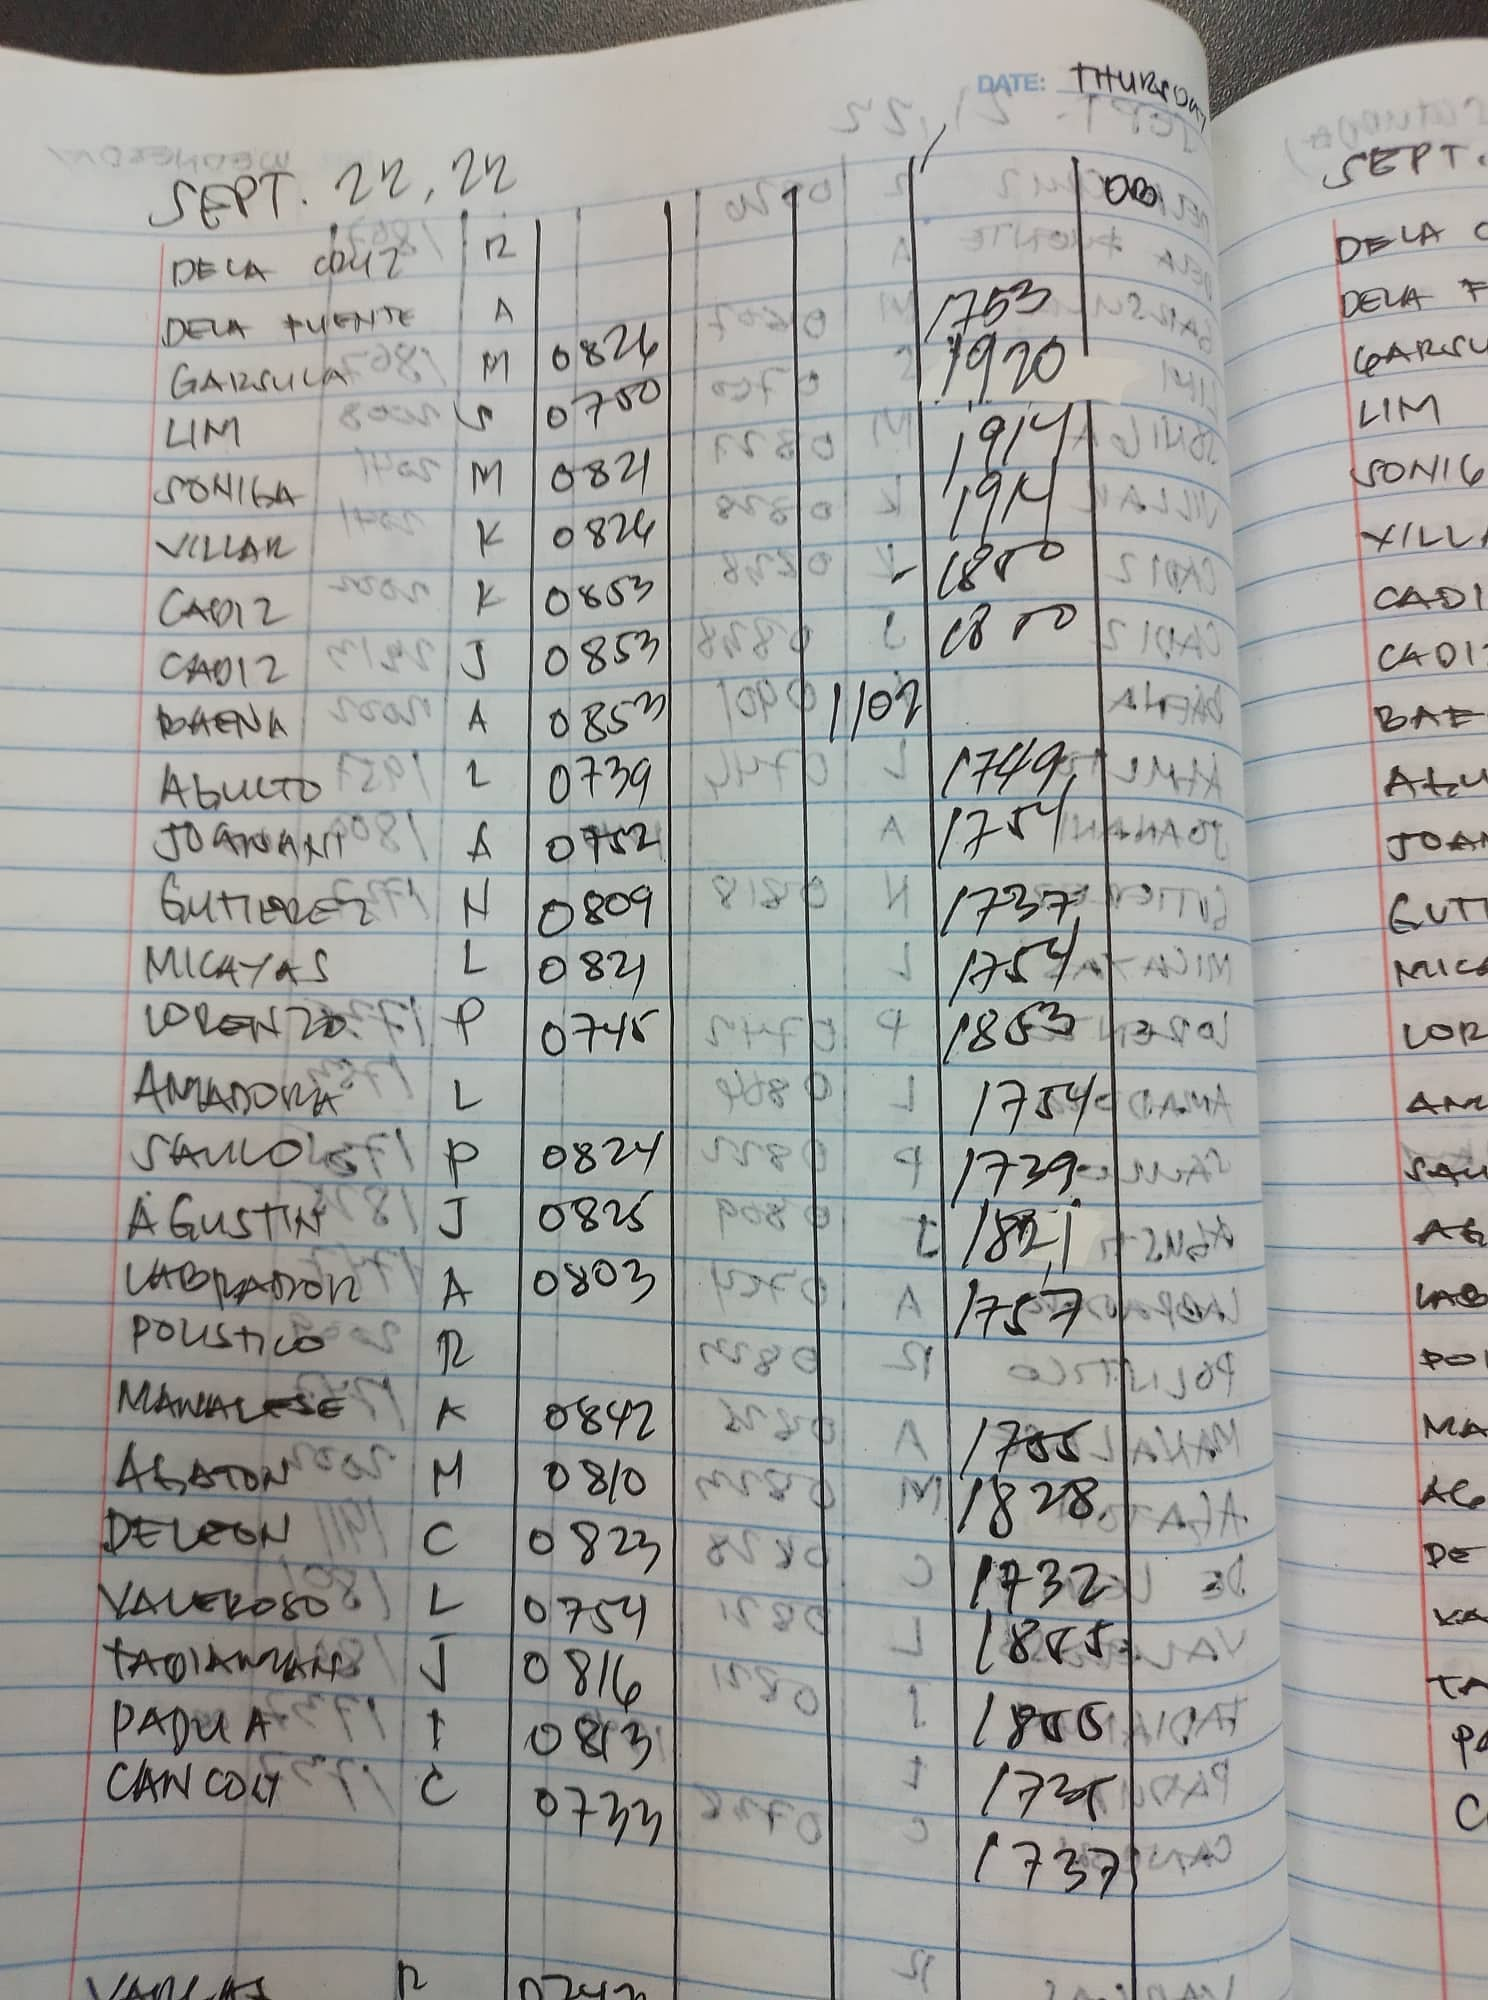 DATE: THURSDAY
SEPT. 22, 22
OB
DELA CRUZ R
DELA FUENTE A
GARSULA M 0826 1753
LIM S 0750 1920
SONIGA M 0821 1914
VILLAR K 0826 1914
CADIZ K 0853 1850
CADIZ J 0853 1850
BAENA A 0853 1102
AGULTO L 0739 1749
JOANANI A 0752 1754
GUTIEREZ N 0809 1737
MICAYAS L 0821 1754
LORENZO P 0745 1853
AMADORA L 1754
SAULO P 0824 1739
AGUSTIN J 0825 1821
LABRADOR A 0803 1757
POLISTICO R
MANALESE A 0842 1755
AGATON M 0810 1828
DELEON C 0823 1732
VALEROSO L 0754 1855
TADIAMAN J 0816 1855
PADUA I 0813 1735
CANCOLY C 0733 1737
VARGAS R
SEPT.
DELA C
DELA F
GARSU
LIM
SONIG
VILLA
CADI
CADIZ
BAE
AGU
JOAN
GUTI
MICA
LOR
AM
SAU
AG
LAB
POL
MA
AG
DE
VA
TA
PA
C